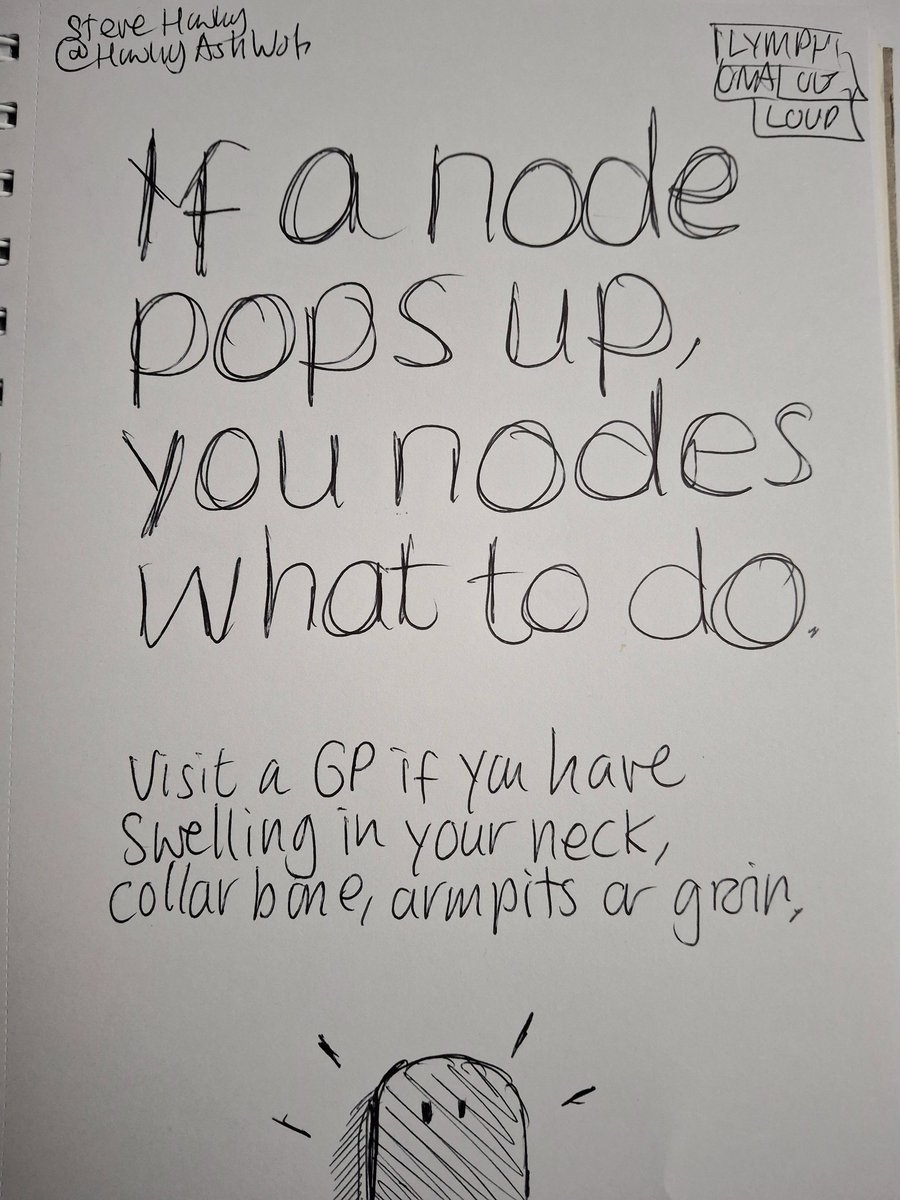 Steve Hawley
@HawleyAshWob
LYMPH
OMA OUT
LOUD
If a node
pops up,
you nodes
what to do.
Visit a GP if you have
swelling in your neck,
collar bone, armpits or groin.